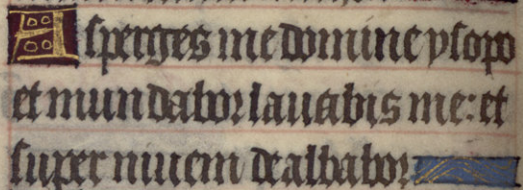 Asperges me domine ysopo
et mundabor lauabis me: et
super niuem dealbabor